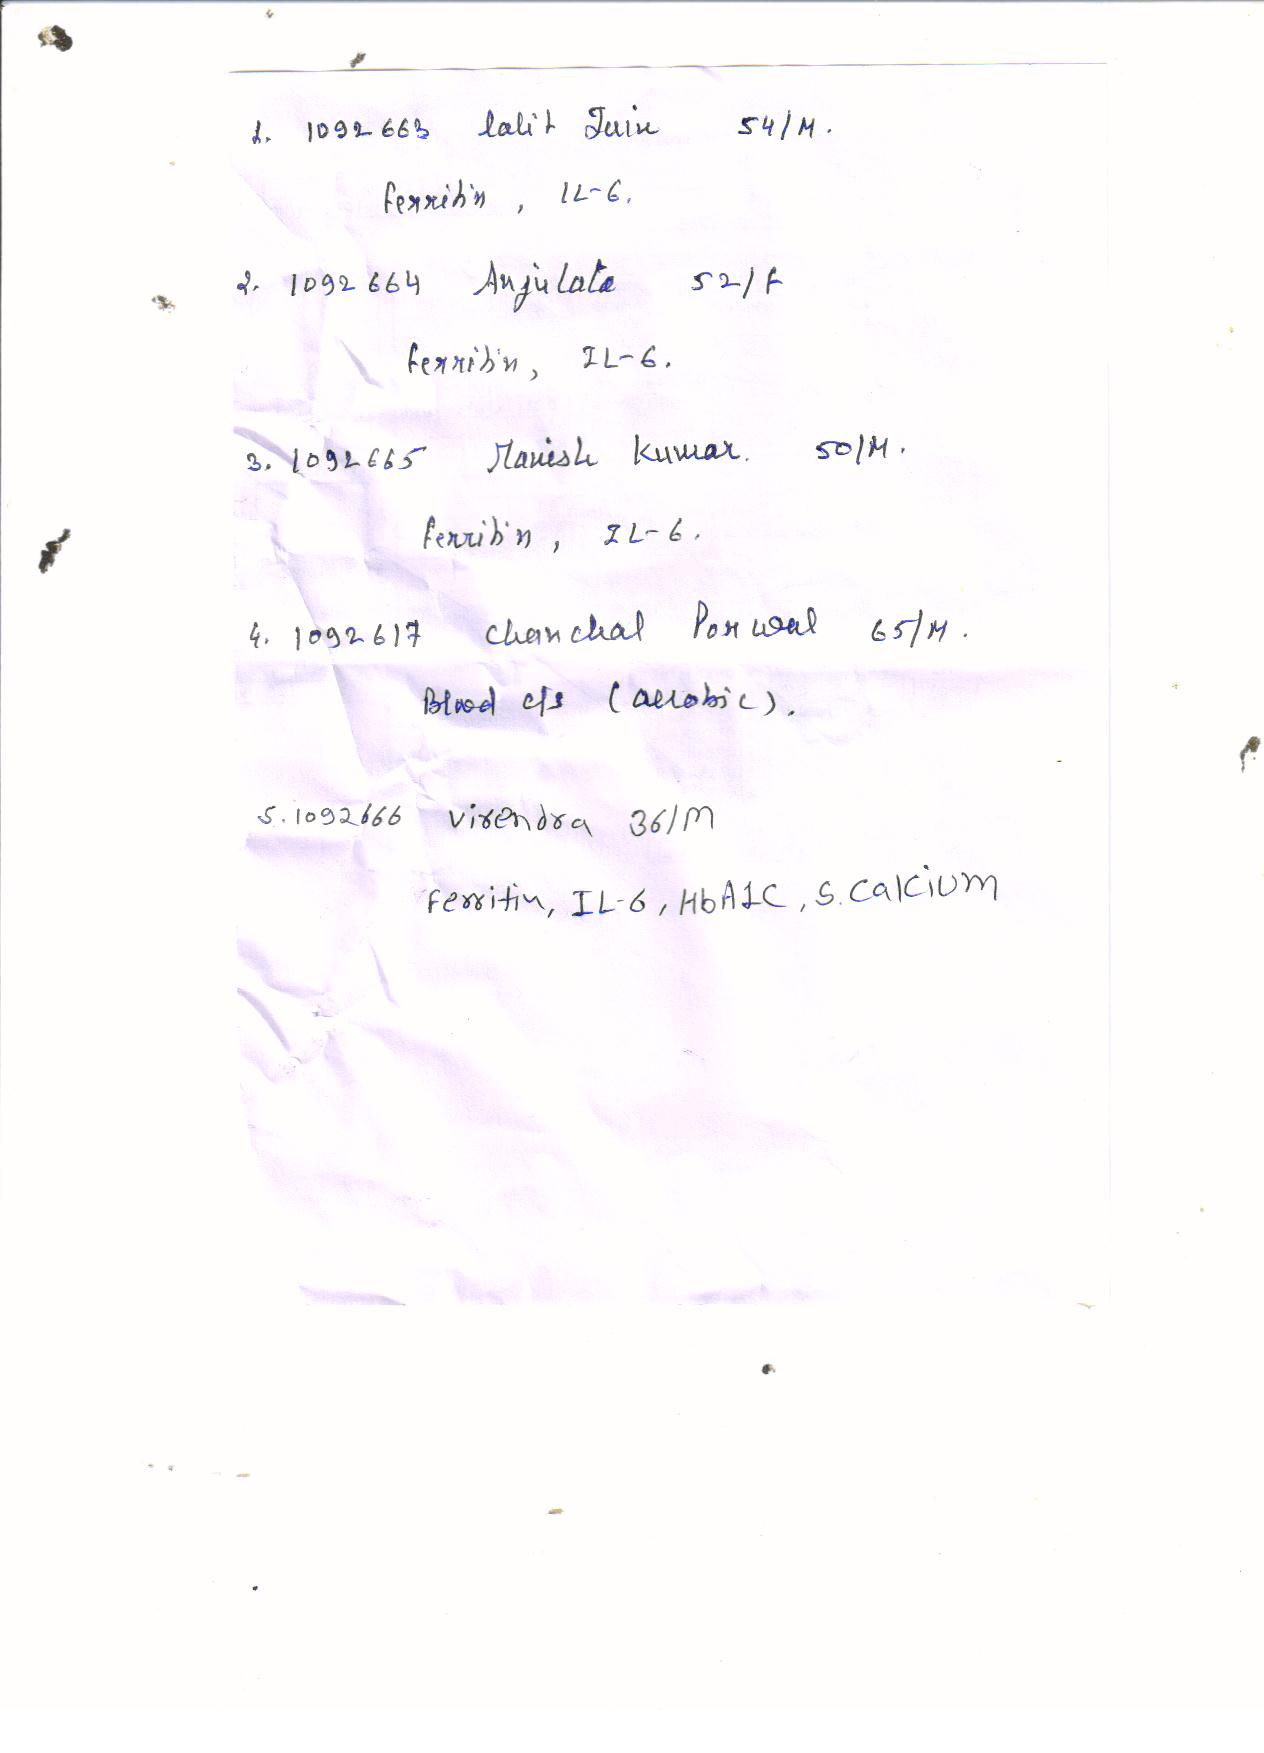 1. 1092663 Lalit Jain 54/M.
Ferritin, IL-6.
2. 1092664 Anjulata 52/F
Ferritin, IL-6.
3. 1092665 Manish Kumar. 50/M.
Ferritin, IL-6.
4. 1092617 Chanchal Porwal 65/M.
Blood c/s (aerobic).
5. 1092666 Virendra 36/M
Ferritin, IL-6, HbA1C, S. Calcium